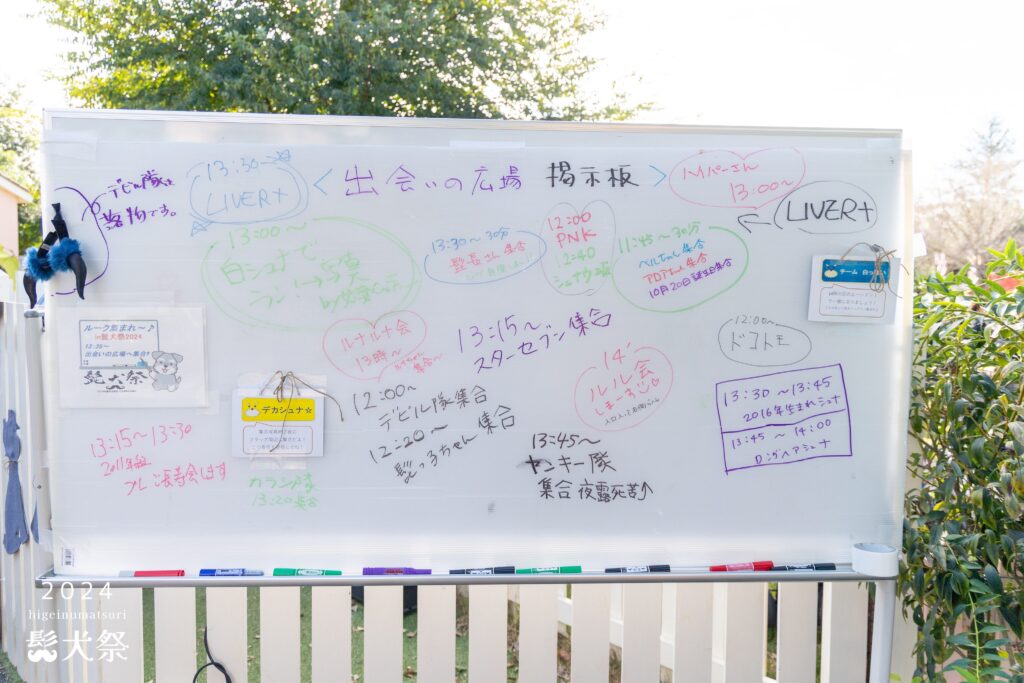 デビル隊は
落物です。
13:30~
LIVER+
< 出会いの広場 掲示板 >
Mパーさん
13:00~
← LIVER+
13:00~
白シュナで
13:30~30分
髭長さん集合
12:00
PNK
2:40
11:45~30分
ベルちゃん集合
PDAちゃん集合
10月20日誕生日集合
チーム 白っ
ルーク集まれ~♪
in髭犬祭2024
13:30~
出会いの広場へ集合!
髭犬祭
ルナルナ会
13時~
集合~
13:15~
スターセブン集合
12:00~
ドコトモ
14'
ルル会
しまーす
デカシュナ☆
12:00~
デビル隊集合
12:20~
髭っ子ちゃん 集合
13:30~13:45
2016年生まれシュナ
13:45~14:00
ロングヘアシュナ
13:15~13:30
2011年組
プレ長寿会はす
カラシ隊
13:20集合
13:45~
ヤンキー隊
集合 夜露死苦↑
2024
higeinumatsuri
髭犬祭